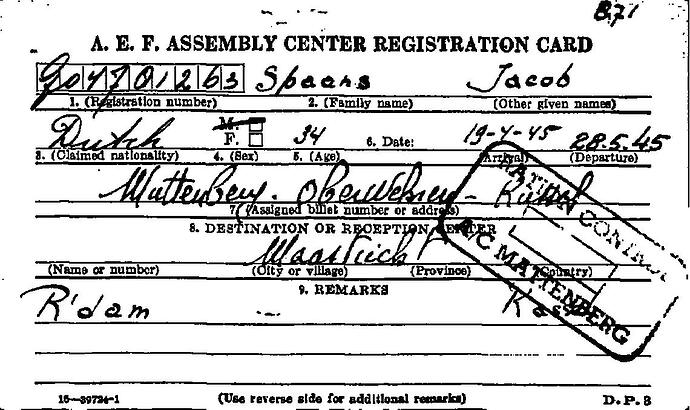 B71
A. E. F. ASSEMBLY CENTER REGISTRATION CARD
Spaans Jacob
1. (Registration number) 2. (Family name) (Other given names)
Dutch M. F. 34 6. Date: 19-4-45 28.5.45
3. (Claimed nationality) 4. (Sex) 5. (Age) (Arrival) (Departure)
Mattenberg - Oberzwehren -
7. (Assigned billet number or address)
8. DESTINATION OR RECEPTION CENTER
Maastricht
(Name or number) (City or village) (Province) (Country)
9. REMARKS
R'dam
RATION CONTROL
A/C MATTENBERG
16—39724-1 (Use reverse side for additional remarks) D.P. 3